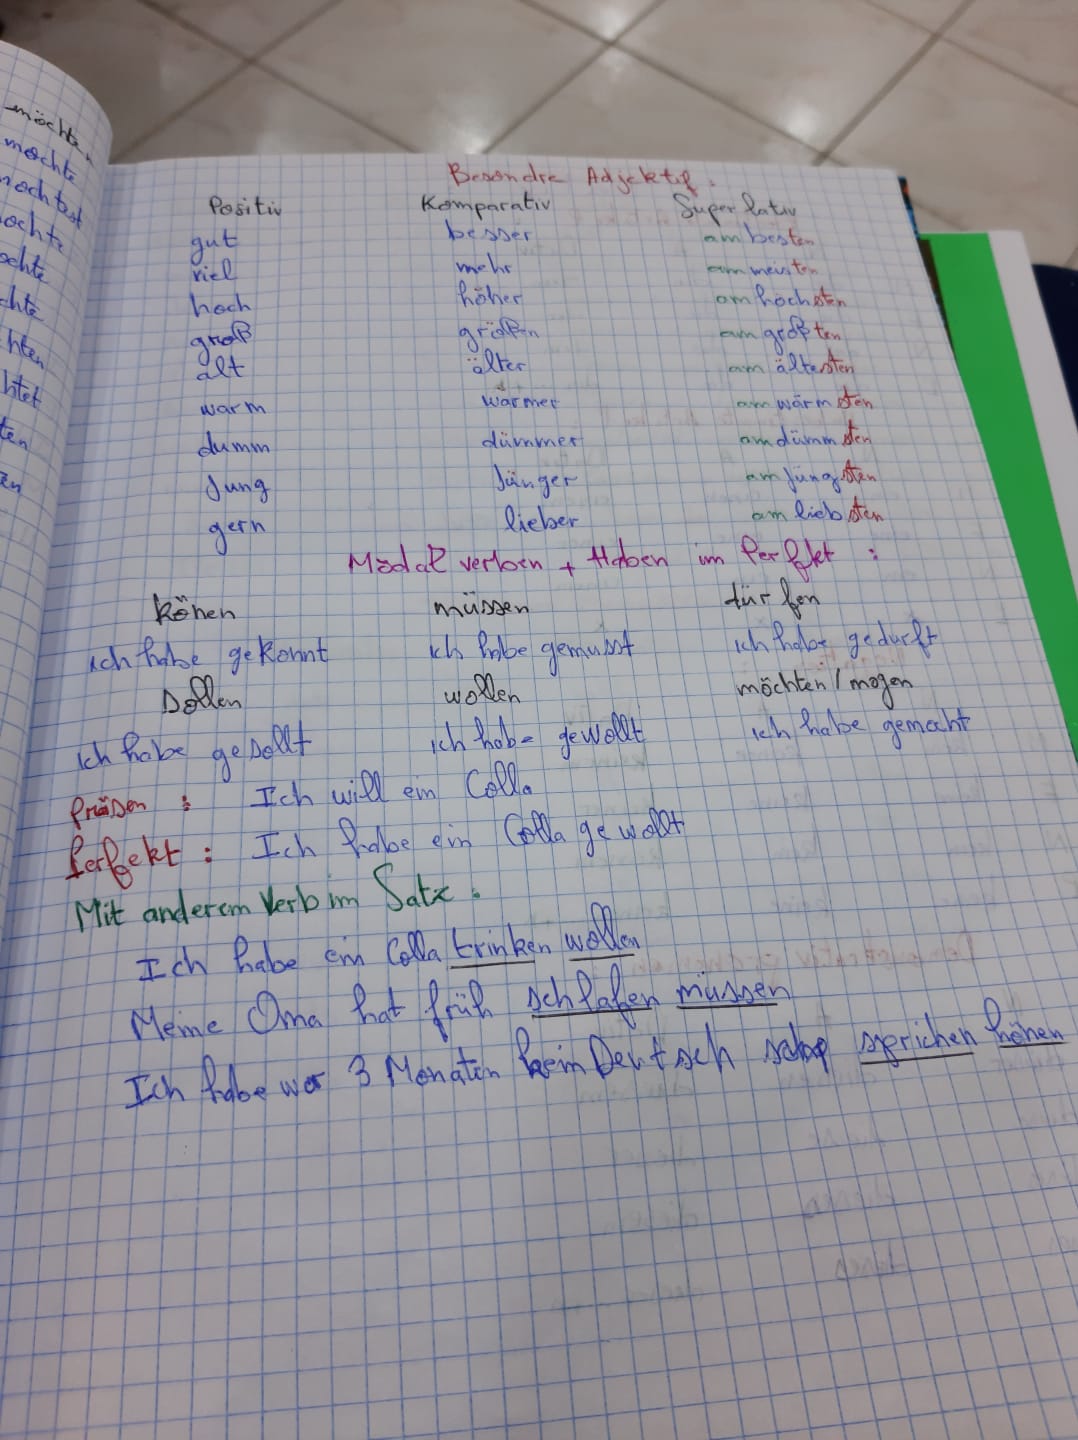 möchte
mochte
mochtest
ochte
ochte
chte
hten
htet
ten
en
Besondre Adjektif :
Positiv Komparativ Superlativ
gut besser am besten
viel mehr am meisten
hoch höher am höchsten
groß größen am größten
alt älter am ältesten
warm wärmer am wärmsten
dumm dümmer am dümmsten
Jung Jünger am Jüngsten
gern lieber am liebsten
Modal verben + Haben im Perfekt :
köhen müssen dürfen
ich habe gekonnt ich habe gemusst ich habe gedurft
Sollen wollen möchten / mogen
ich habe gesollt ich habe gewollt ich habe gemocht
Präsen : Ich will ein Colla
Perfekt : Ich habe ein Colla gewollt
Mit anderem Verb im Satz :
Ich habe ein Colla trinken wollen
Meine Oma hat früh schlafen müssen
Ich habe vor 3 Monaten kein Deutsch sprichen höhen